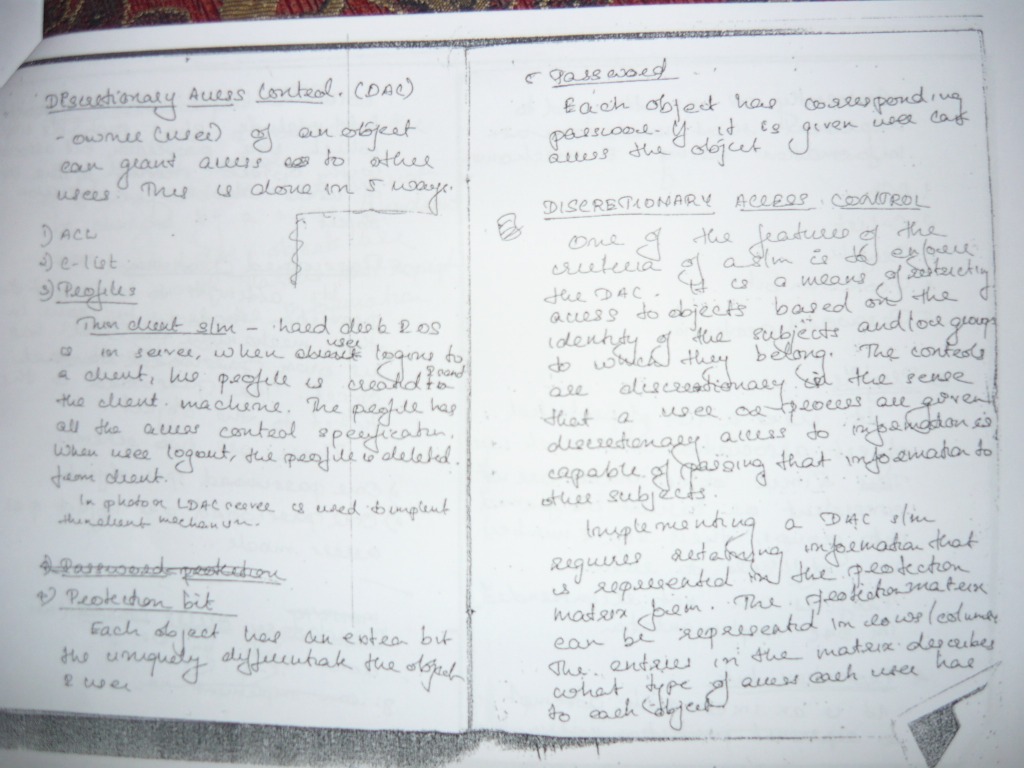 Discretionary Access Control. (DAC)
- owner (user) of an object
can grant access to other
users. This is done in 5 ways.
1) ACL
2) C-list
3) Profiles
Thin client s/m - hard disk & OS
is in server, when user logins to
a client, his profile is created
the client machine. The profile has
all the access control specification.
When user logout, the profile is deleted
from client.
In LDAC server is used to implent
thin client mechanism.
4) Password protection
4) Protection bit
Each object has an extra bit
the uniquely differentiate the object
& user
5 Password
Each object has corresponding
password. If it is given user can
access the object
DISCRETIONARY ACCESS CONTROL
One of the features of the
criteria of a s/m is to enforce
the DAC. It is a means of restricting
access to objects based on the
identity of the subjects and/or groups
to which they belong. The controls
are discretionary in the sense
that a user or process are given
discretionary access to information is
capable of passing that information to
other subjects.
Implementing a DAC s/m
requires retaining information that
is represented in the protection
matrix form. The protection matrix
can be represented in rows/columns
The entries in the matrix describes
what type of access each user has
to each object